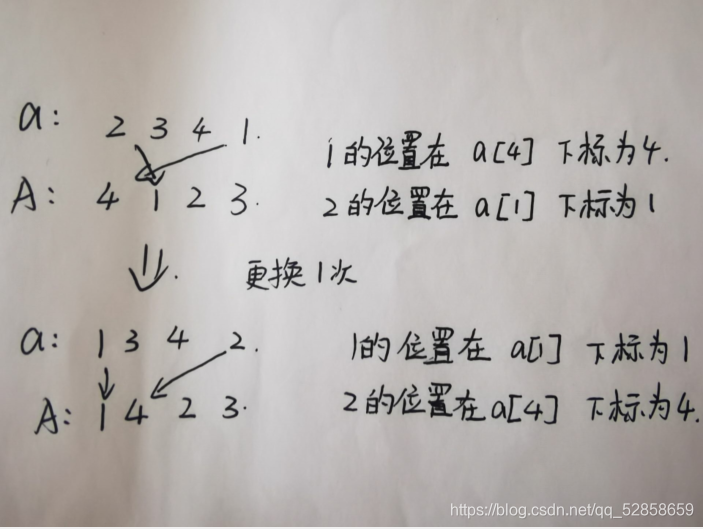 a: 2 3 4 1. 1的位置在 a[4] 下标为4.
A: 4 1 2 3. 2的位置在 a[1] 下标为1
更换1次
a: 1 3 4 2. 1的位置在 a[1] 下标为1
A: 1 4 2 3. 2的位置在a[4] 下标为4.
https://blog.csdn.net/qq_52858659